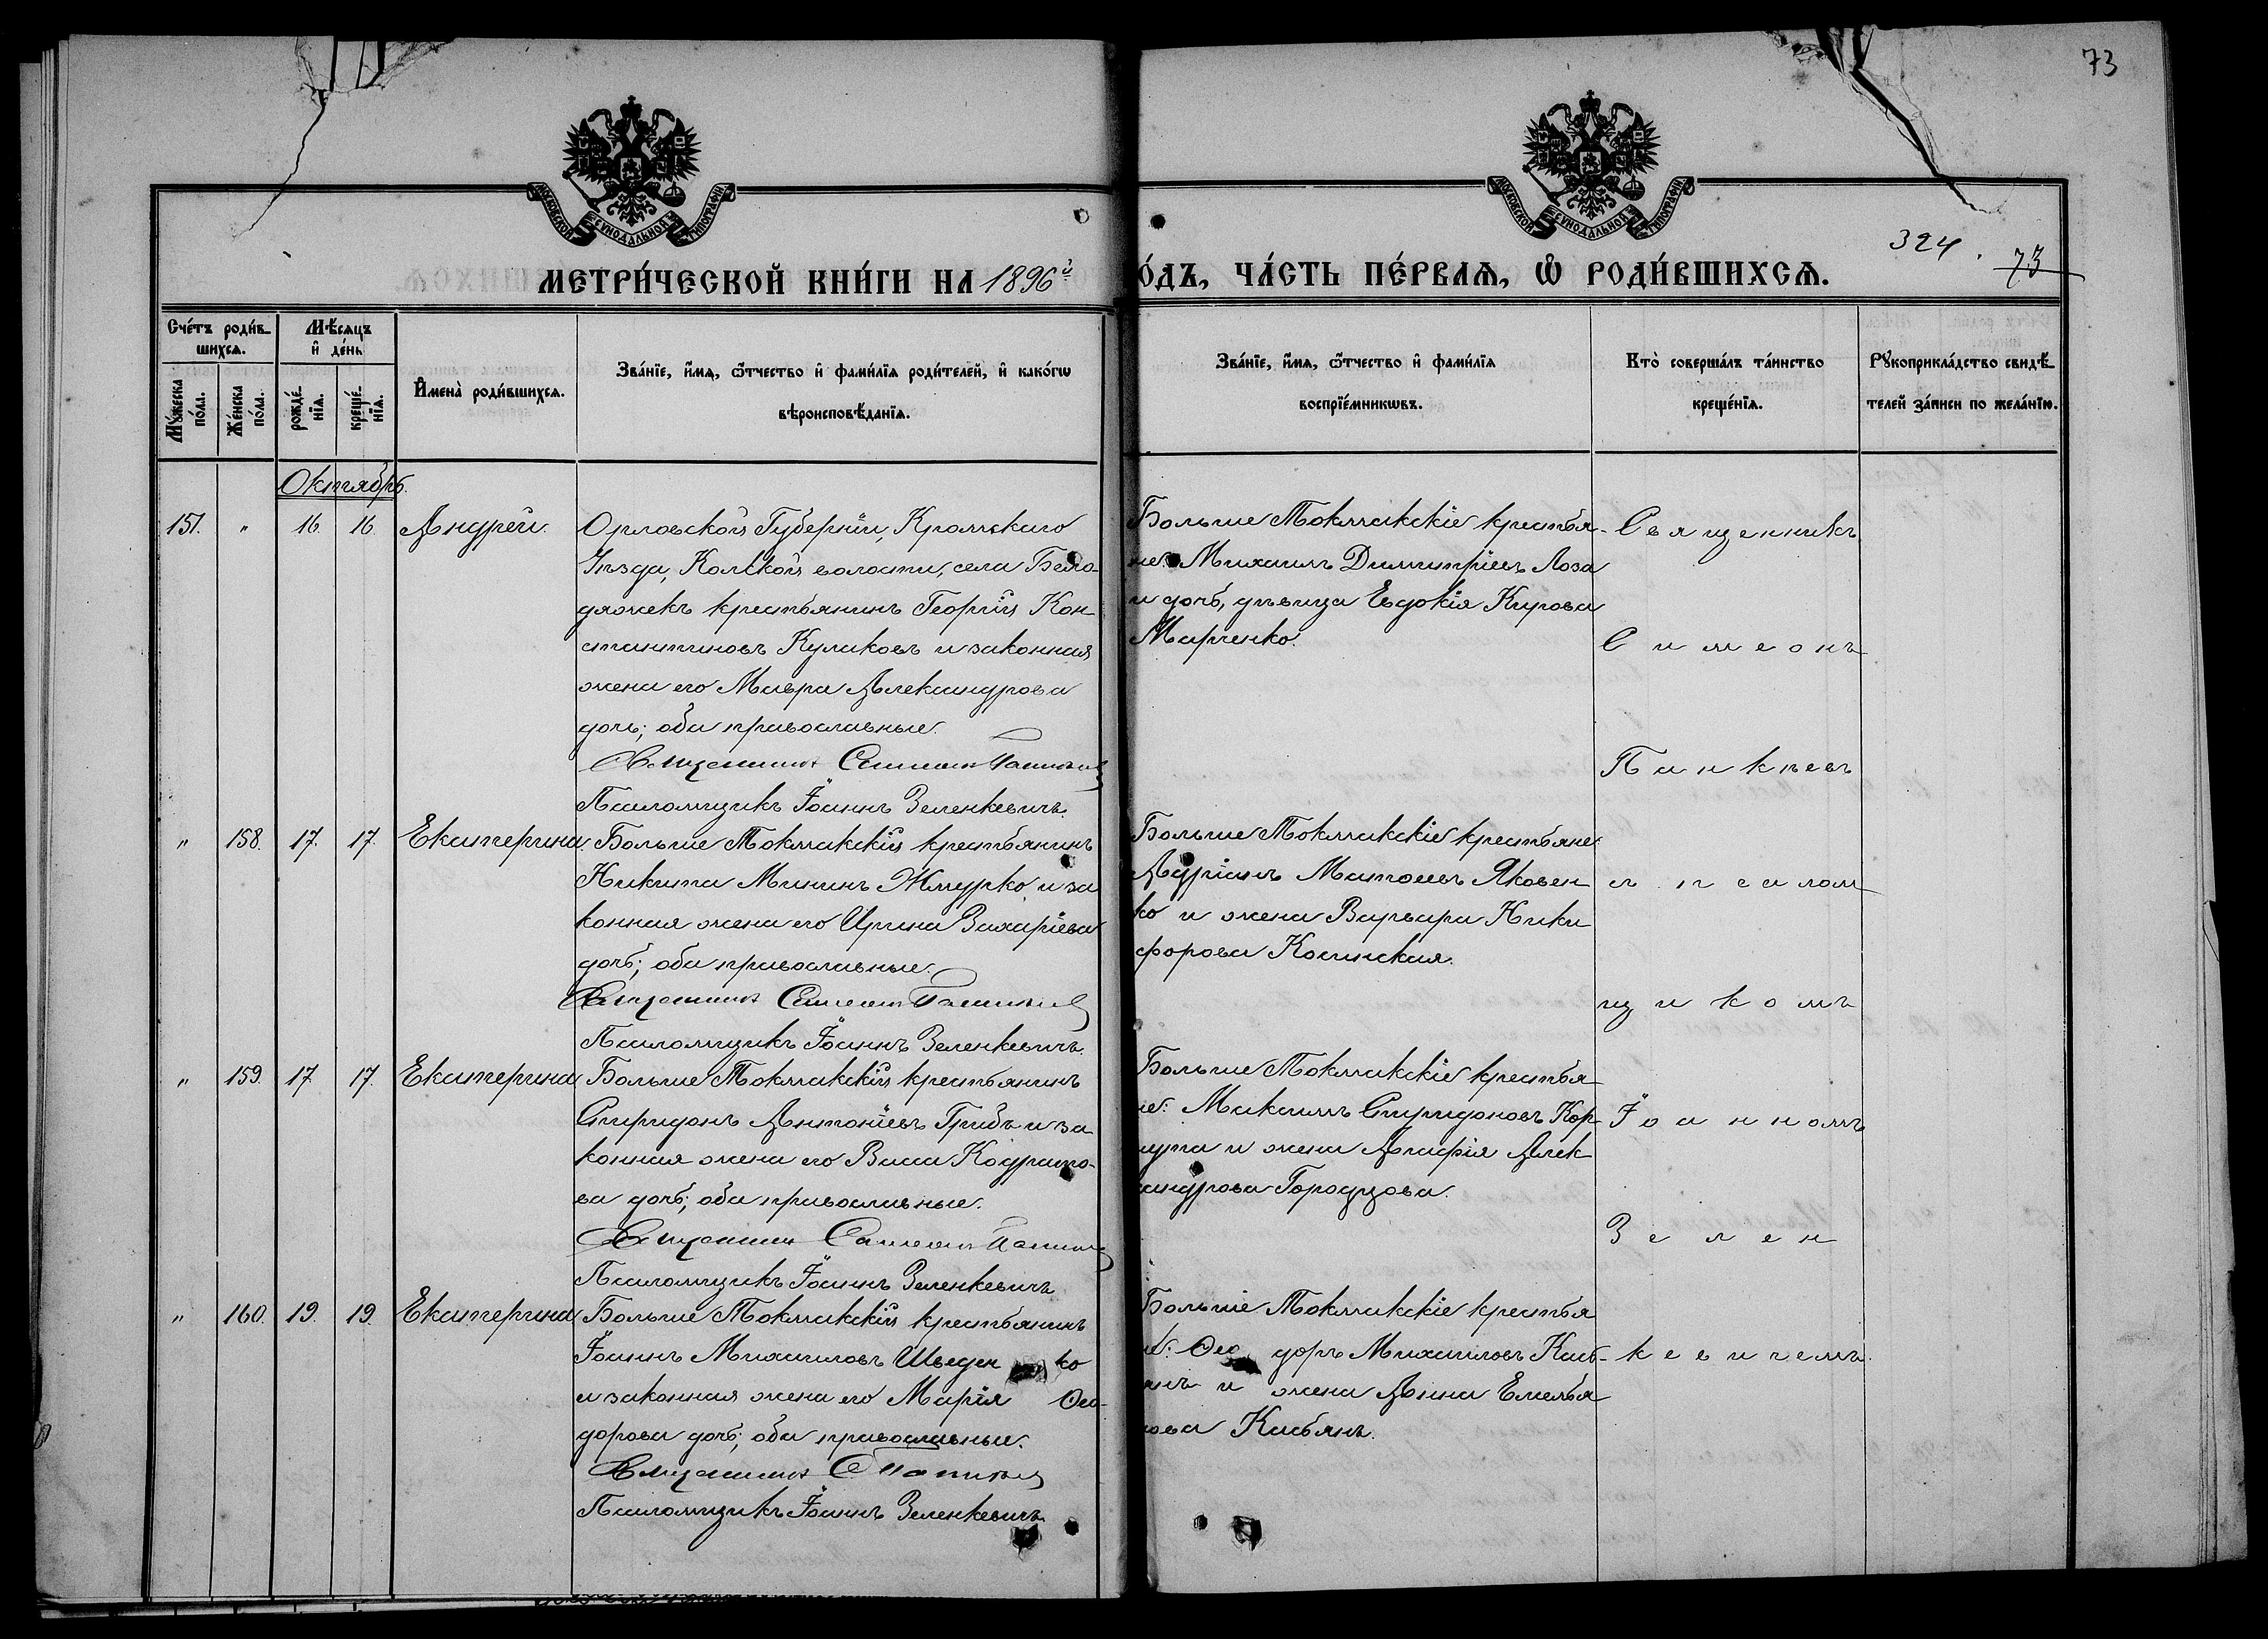 73
МОСКОВСКОЙ СѴНОДАЛЬНОЙ ТИПОГРАФІИ
МОСКОВСКОЙ СѴНОДАЛЬНОЙ ТИПОГРАФІИ
324. 73
МЕТРИ́ЧЕСКОЙ КНИ́ГИ НА 1896й
О́ДЪ, ЧА́СТЬ ПЕ́РВАѦ, Ѿ РОДИ́ВШИХСѦ.
Сче́тъ роди́в-
шихсѧ.
Мꙋ́жеска по́ла.
Же́нска по́ла.
Мѣ́сѧцъ
и҆ де́нь
рожде́-нїѧ.
креще́-нїѧ.
И҆мена̀ роди́вшихсѧ.
Зва́нїе, и҆́мѧ, ѻ҆́тчество и҆ фами́лїѧ роди́телей, и҆ како́гѡ
вѣроисповѣ́данїѧ.
Зва́нїе, и҆́мѧ, ѻ҆́тчество и҆ фами́лїѧ
воспрїе́мникѡвъ.
Кто̀ соверша́лъ та́инство
креще́нїѧ.
Рꙋкоприкла́дство свидѣ́-
телей за́писи по жела́нїю.
Октябрь.
157. " 16. 16. Андрей. Орловской Губерніи, Кромскаго
Уѣзда, Колской волости, села Бело-
дяжекъ крестьянинъ Георгій Кон-
стантиновъ Кулаковъ и законная
жена его Мавра Александрова
дочь; оба православные.
Священникъ Симеонъ Панкѣевъ
Псаломщикъ Іоаннъ Зеленкевичъ.
Больше Токмакскіе крестья-
не: Михаилъ Димитріевъ Лоза
и дочь, дѣвица Евдокія Кирова
Марченко.
" 158. 17. 17. Екатерина. Больше Токмакскій крестьянинъ
Никита Мининъ Жмурко и за
конная жена его Ирина Захаріева
дочь; оба православные.
Священникъ Симеонъ Панкѣевъ
Псаломщикъ Іоаннъ Зеленкевичъ.
Больше Токмакскіе крестьяне
Адріанъ Матѳіевъ Яковен
ко и жена Варвара Ники
форова Косинская.
" 159. 17. 17. Екатерина Больше Токмакскій крестьянинъ
Спиридонъ Антоніевъ Грибъ и за
конная жена его Васса Кодрато-
ва дочь; оба православные.
Священникъ Симеонъ Панкѣевъ
Псаломщикъ Іоаннъ Зеленкевичъ
Больше Токмакскіе крестья
не: Максимъ Спиридоновъ Кор
и жена Агафія Алек
сандрова Городцова.
" 160. 19. 19. Екатерина Больше Токмакскій крестьянинъ
Іоаннъ Михаиловъ Шведен ко
и законная жена его Марія Ѳео-
дорова дочь; оба православные.
Священникъ С Панкѣевъ
Псаломщикъ Іоаннъ Зеленкевичъ.
Больше Токмакскіе крестья
не: Ѳео доръ Михаиловъ Касб-
янъ и жена Анна Емелья
нова Касбянъ.
Священникъ
Симеонъ
Панкѣевъ
съ псалом
щикомъ
Іоанномъ
Зелен
кевичемъ.